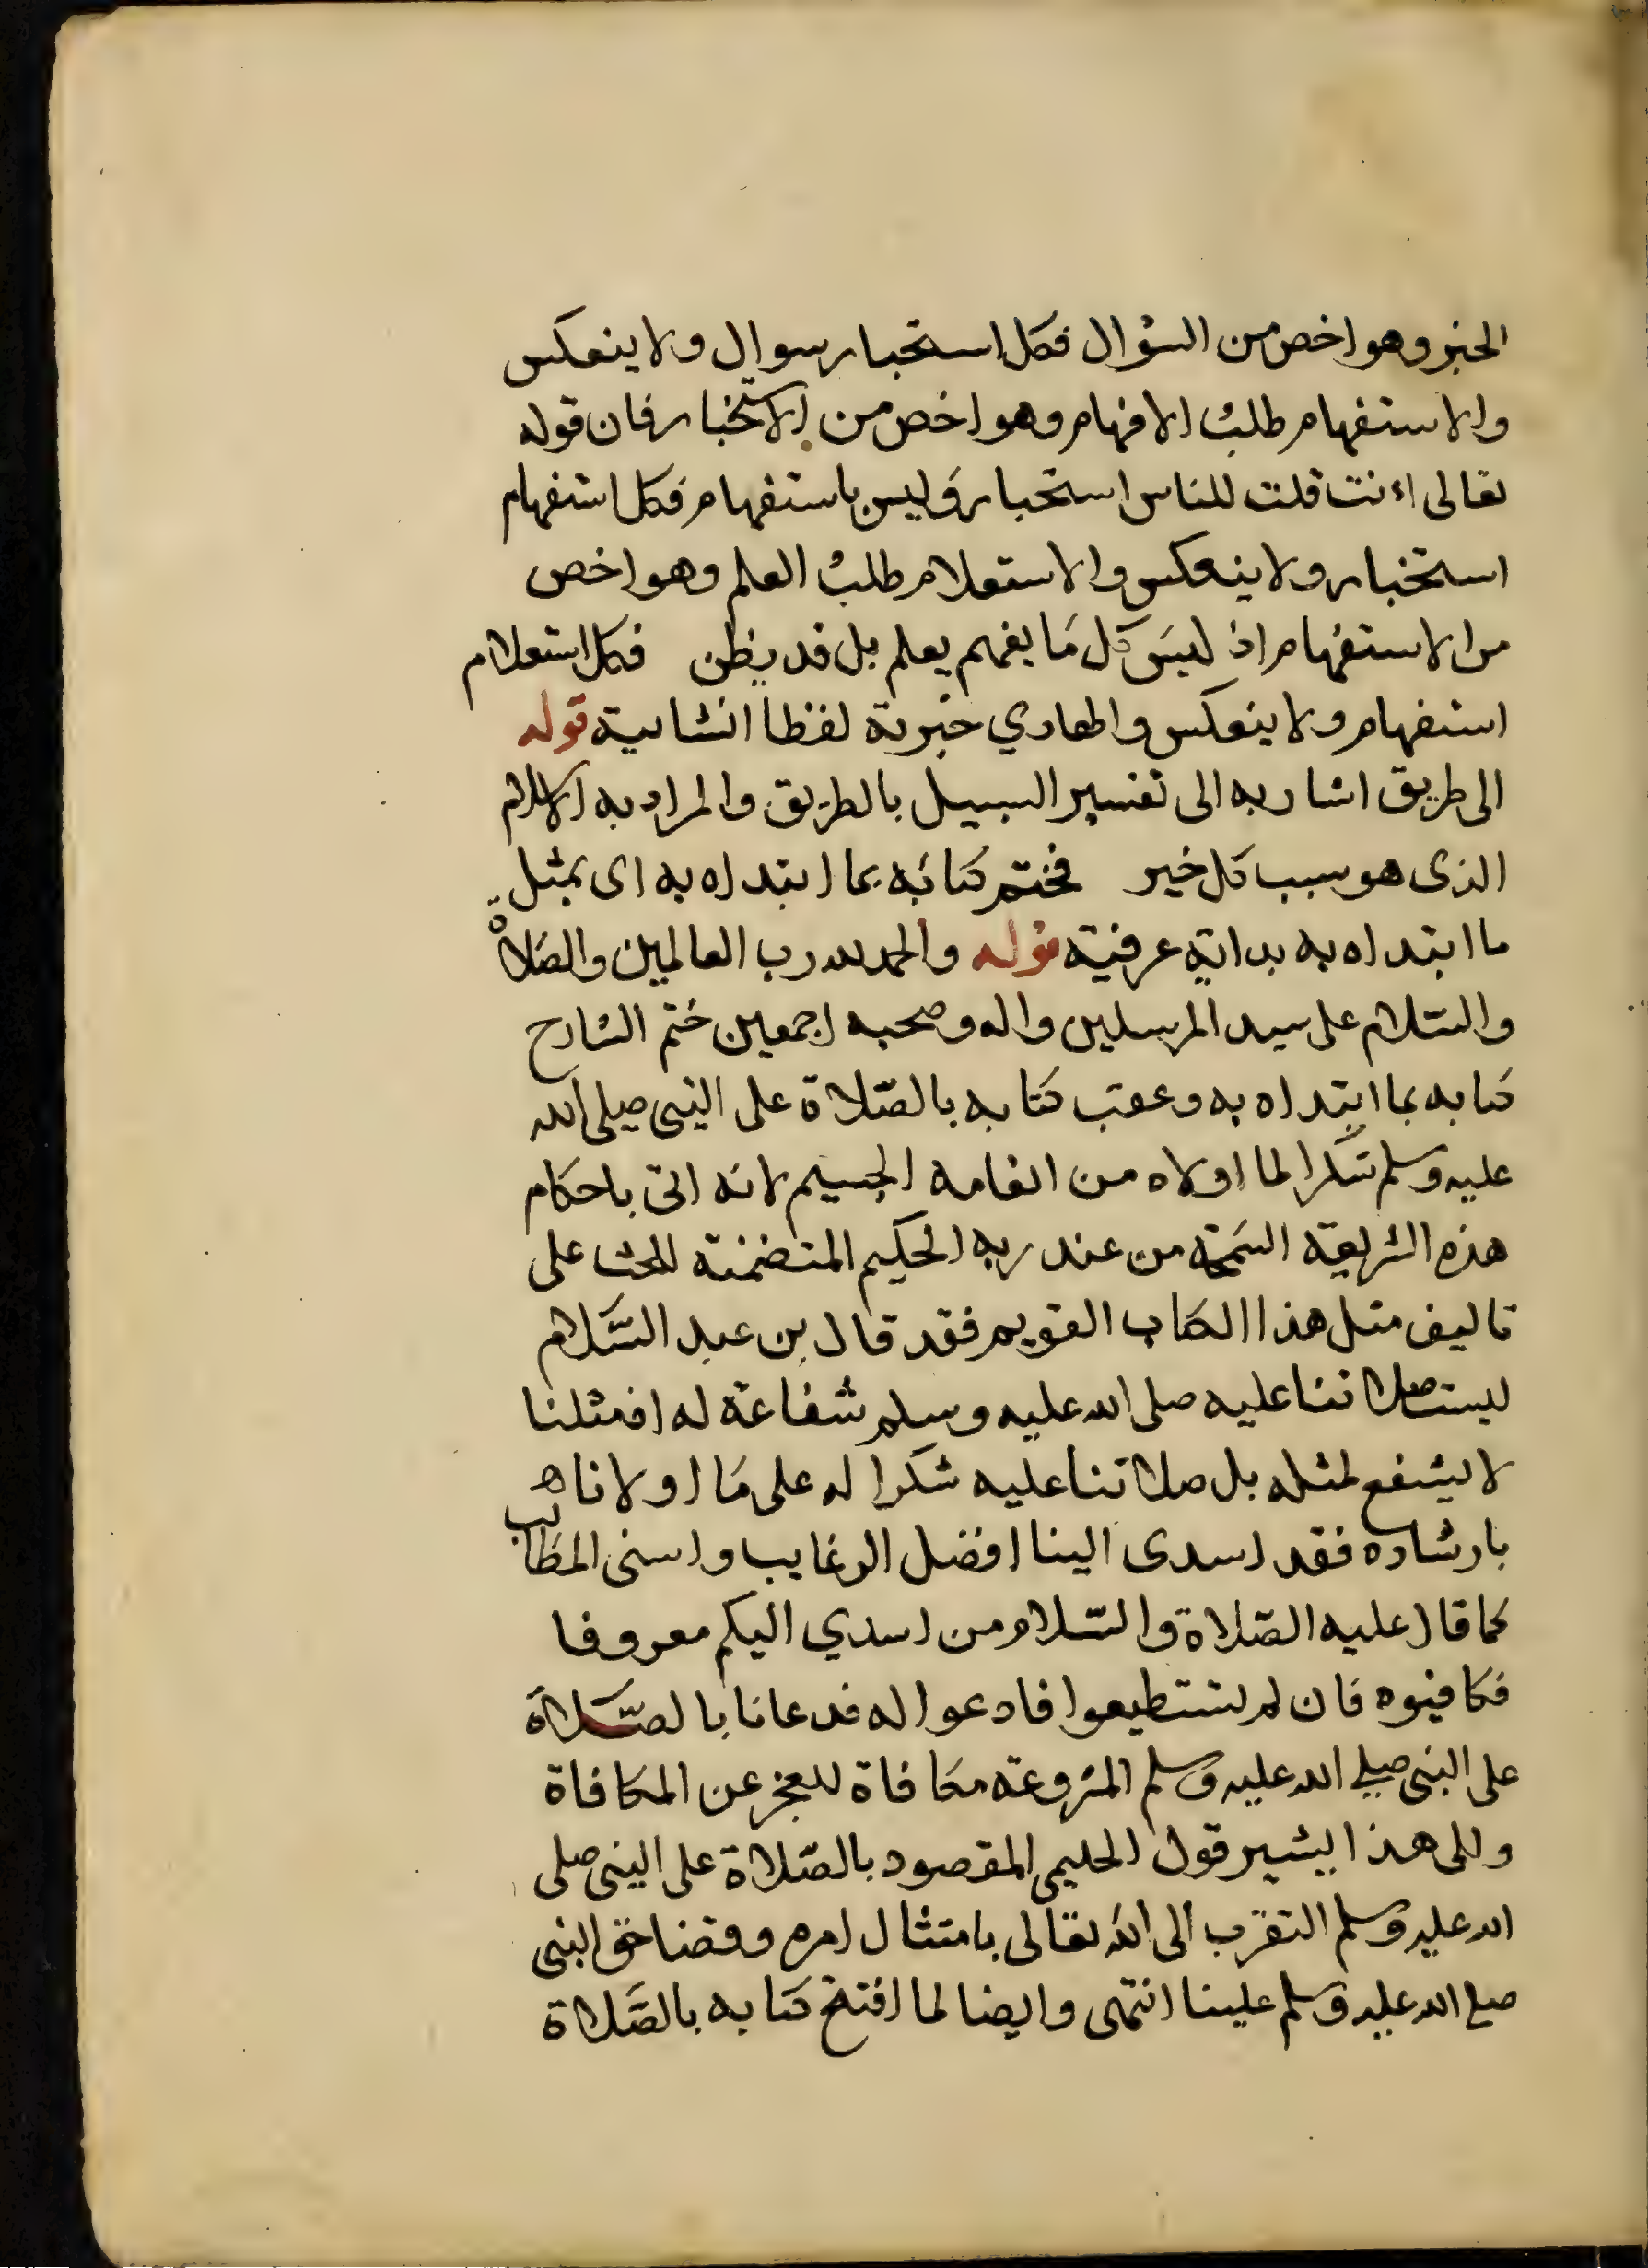 الخبر وهو اخص من السؤال فكل استخبار سوال ولا ينعكس
والاستفهام طلب الافهام وهو اخص من الاستخبار فان قوله
تعالى اءنت قلت للناس استخبار وليس باستفهام فكل استفهام
استخبار ولا ينعكس والاستعلام طلب العلم وهو اخص
من الاستفهام اذ ليس كل ما يفهم يعلم بل قد يظن فكل استعلام
استفهام ولا ينعكس والهادي خبرية لفظا انشايية قوله
الى طريق اشار به الى تفسير السبيل بالطريق والمراد به الاسلام
الذى هو سبب كل خير فختم كتابه بما ابتداه به اى بمثل
ما ابتداه به بداية عرفية قوله والحمد لله رب العالمين والصلاة
والسلام على سيد المرسلين واله وصحبه اجمعين ختم الشارح
كتابه بما ابتداه به وعقب كتابه بالصلاة على النبى صلى الله
عليه وسلم شكرا لما اولاه من انعامه الجسيم لانه اتى باحكام
هذه الشريعة السمحة من عند ربه الحكيم المتضمنة للحث على
تاليف مثل هذا الكتاب القويم فقد قال بن عبد السلام
ليست صلاتنا عليه صلى الله عليه وسلم شفاعة له اذ مثلنا
لا يشفع لمثله بل صلاتنا عليه شكرا له على ما اولاناه
بارشاده فقد اسدى الينا افضل الرغايب واسنى المطالب
كما قال عليه الصلاة والسلام من اسدي اليكم معروفا
فكافيوه فان لم تستطيعوا فادعوا له فدعانا بالصلاة
على النبى صلى الله عليه وسلم المشروعة مكافاة للعجز عن المكافاة
والى هذا يشير قول الحليمى المقصود بالصلاة على النبى صلى
الله عليه وسلم التقرب الى الله تعالى بامتثال امره وقضا حق النبى
صلى الله عليه وسلم علينا انتهى وايضا لما افتتح كتابه بالصلاة